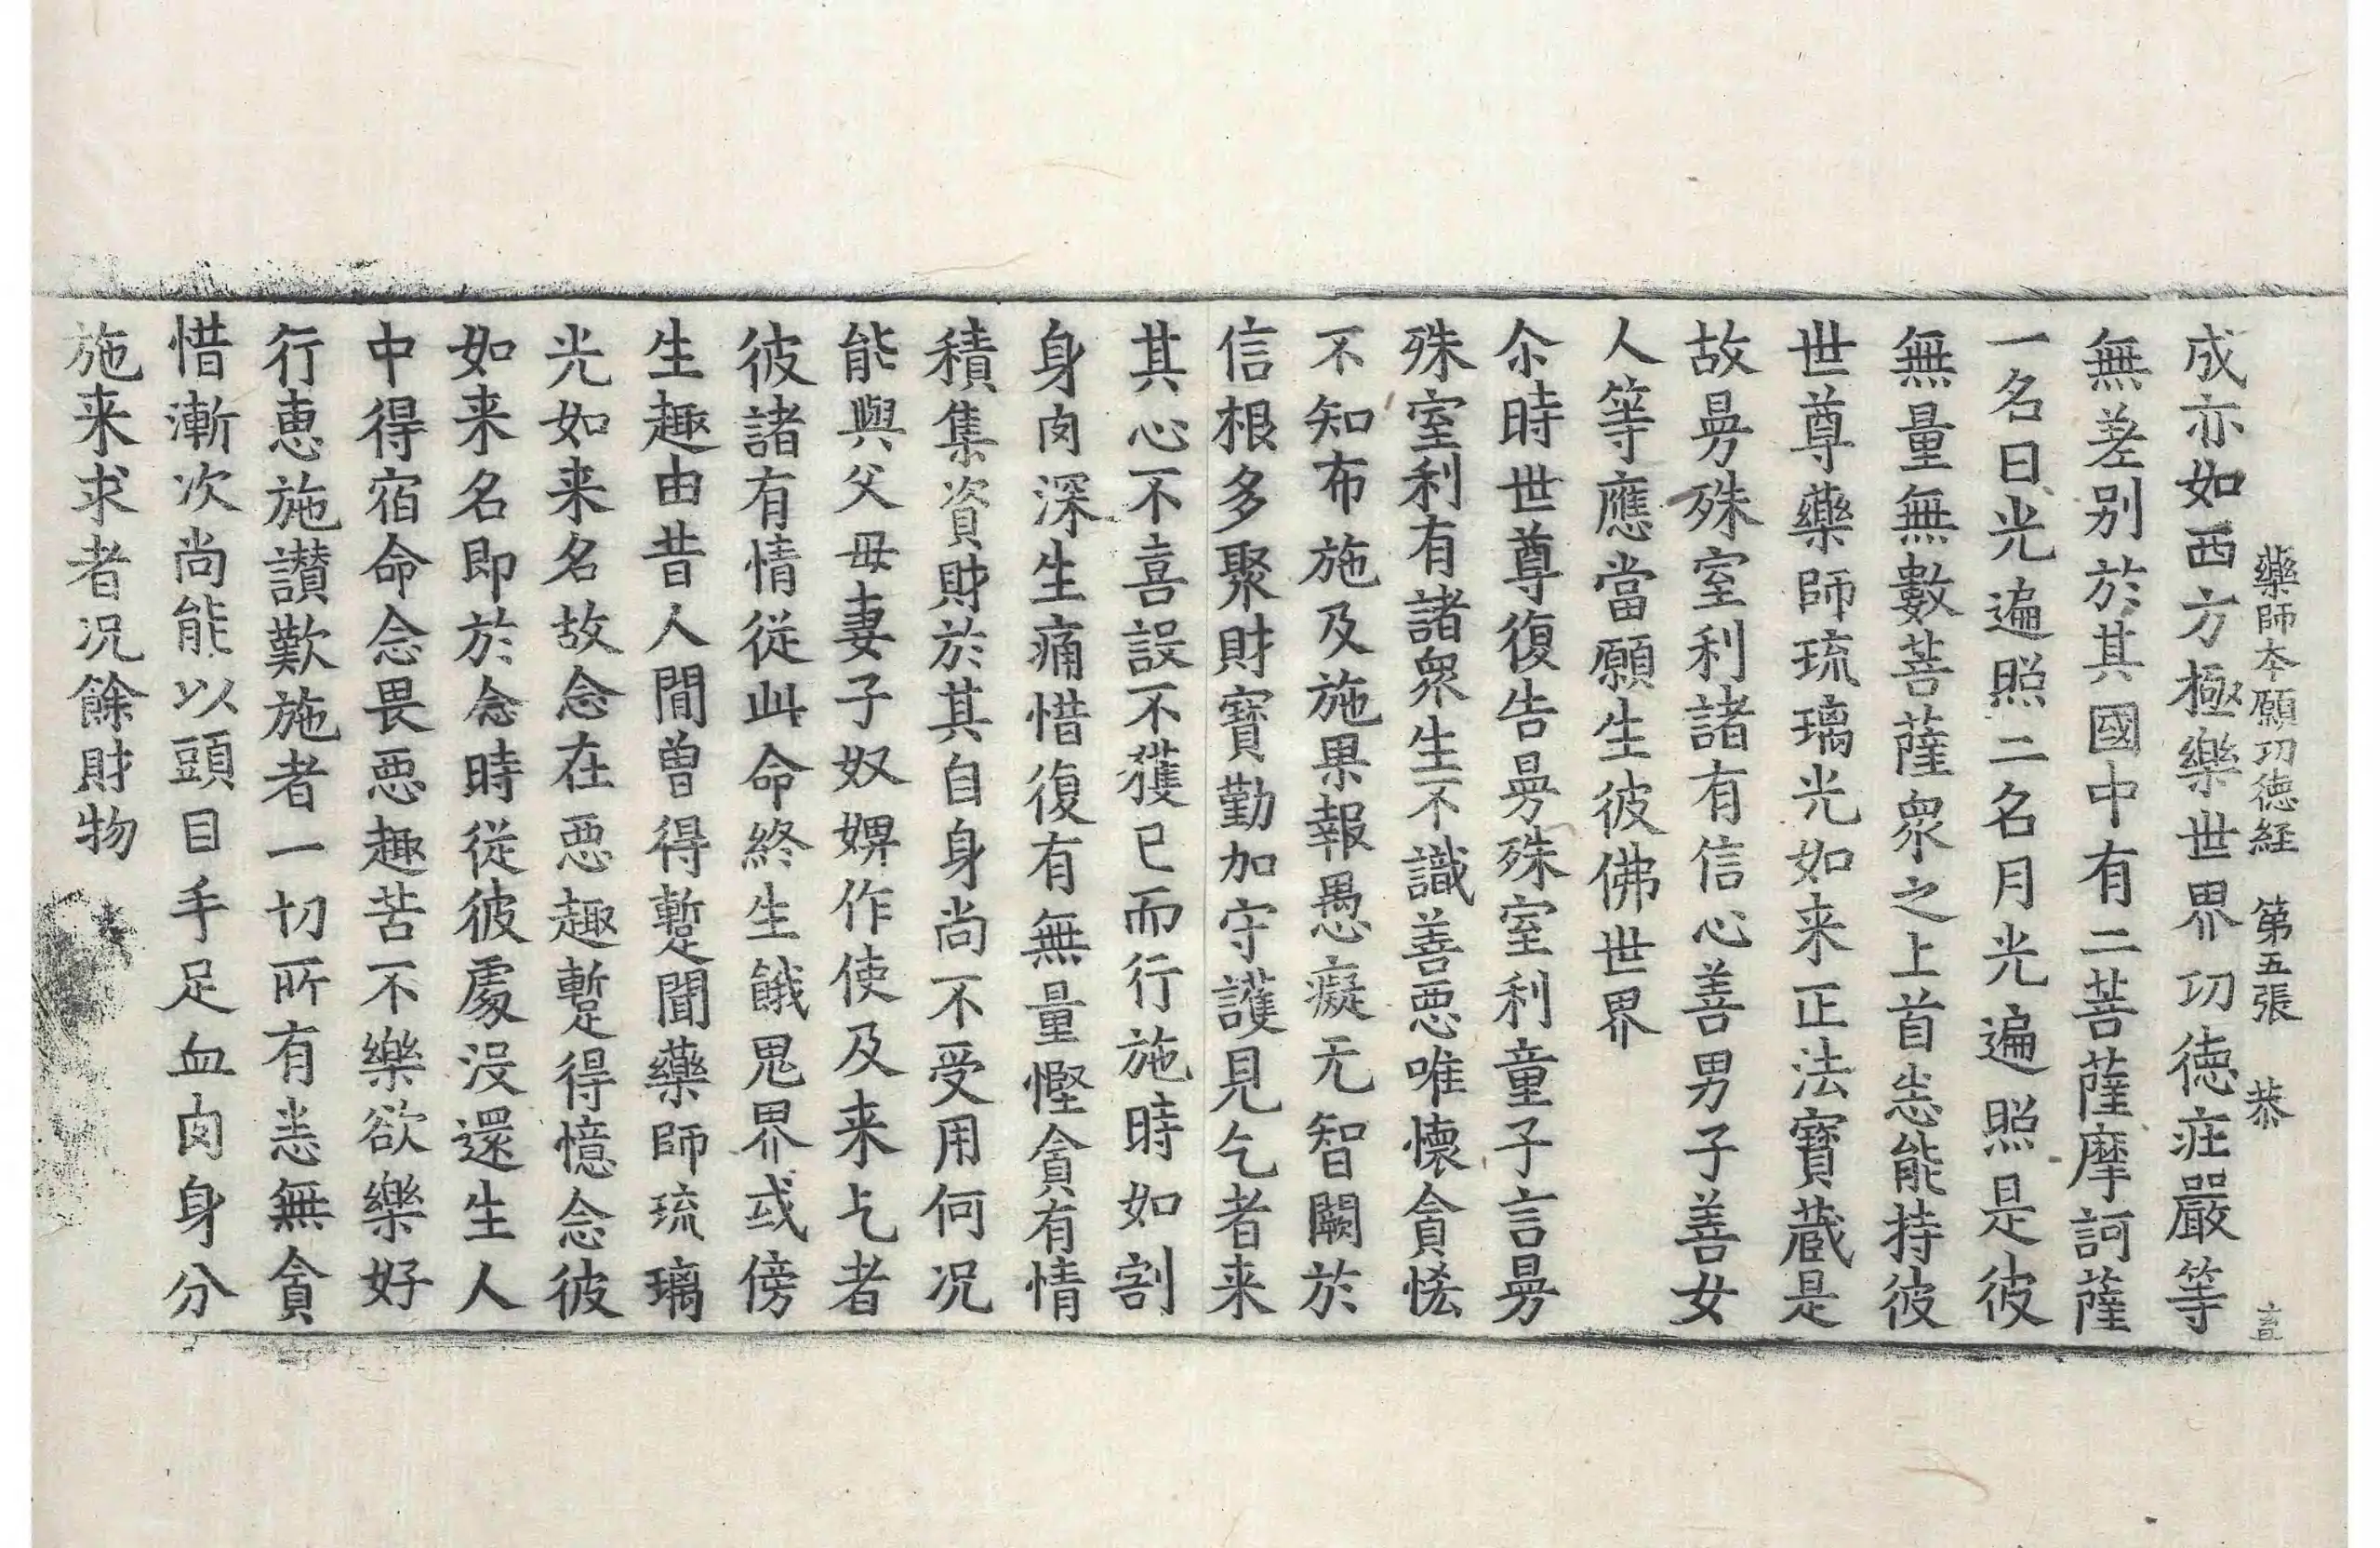 藥師本願功德経 第五張 恭
成亦如西方極樂世界功德莊嚴等
無差别於其國中有二菩薩摩訶薩
一名日光遍照二名月光遍照是彼
無量無數菩薩衆之上首悉能持彼
世尊藥師琉璃光如来正法寶蔵是
故曼殊室利諸有信心善男子善女
人等應當願生彼佛世界
尒時世尊復告曼殊室利童子言曼
殊室利有諸衆生不識善惡唯懷貪悋
不知布施及施果報愚癡无智闕於
信根多聚財寶勤加守護見乞者来
其心不喜設不獲已而行施時如割
身肉深生痛惜復有無量慳貪有情
積集資財於其自身尚不受用何况
能與父母妻子奴婢作使及来乞者
彼諸有情從此命終生餓鬼界或傍
生趣由昔人間曽得暫聞藥師琉璃
光如来名故念在惡趣暫得憶念彼
如来名即於念時從彼處没還生人
中得宿命念畏惡趣苦不樂欲樂好
行惠施讃歎施者一切所有悉無貪
惜漸次尚能以頭目手足血肉身分
施来求者况餘財物